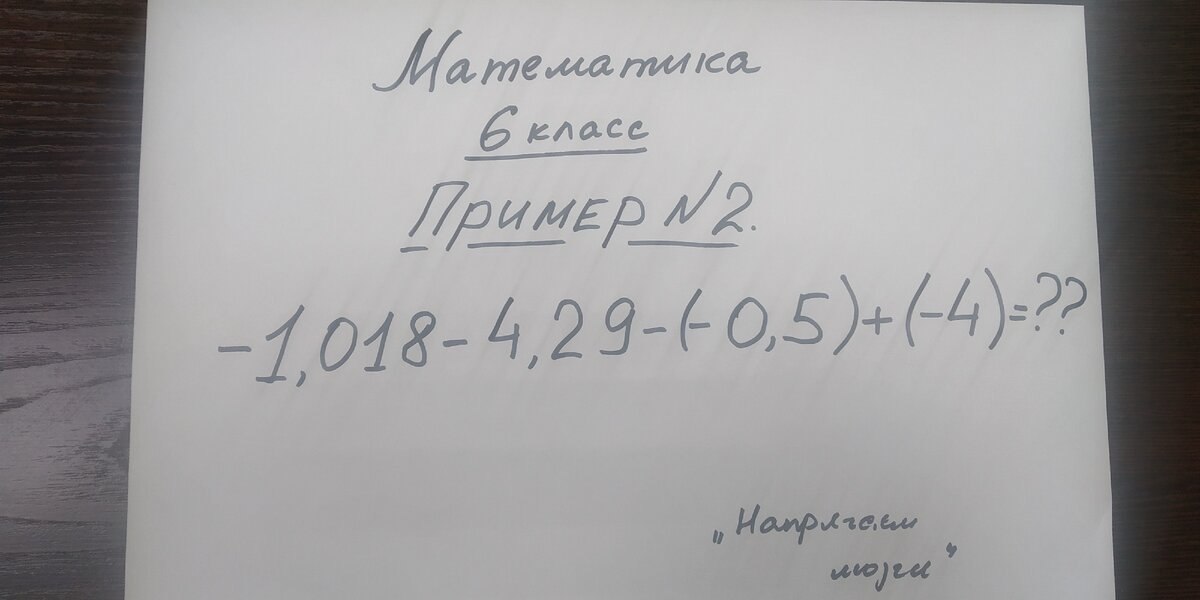 Математика
6 класс
Пример №2.
-1,018-4,29-(-0,5)+(-4)=??
„Напрягаем
мозги"